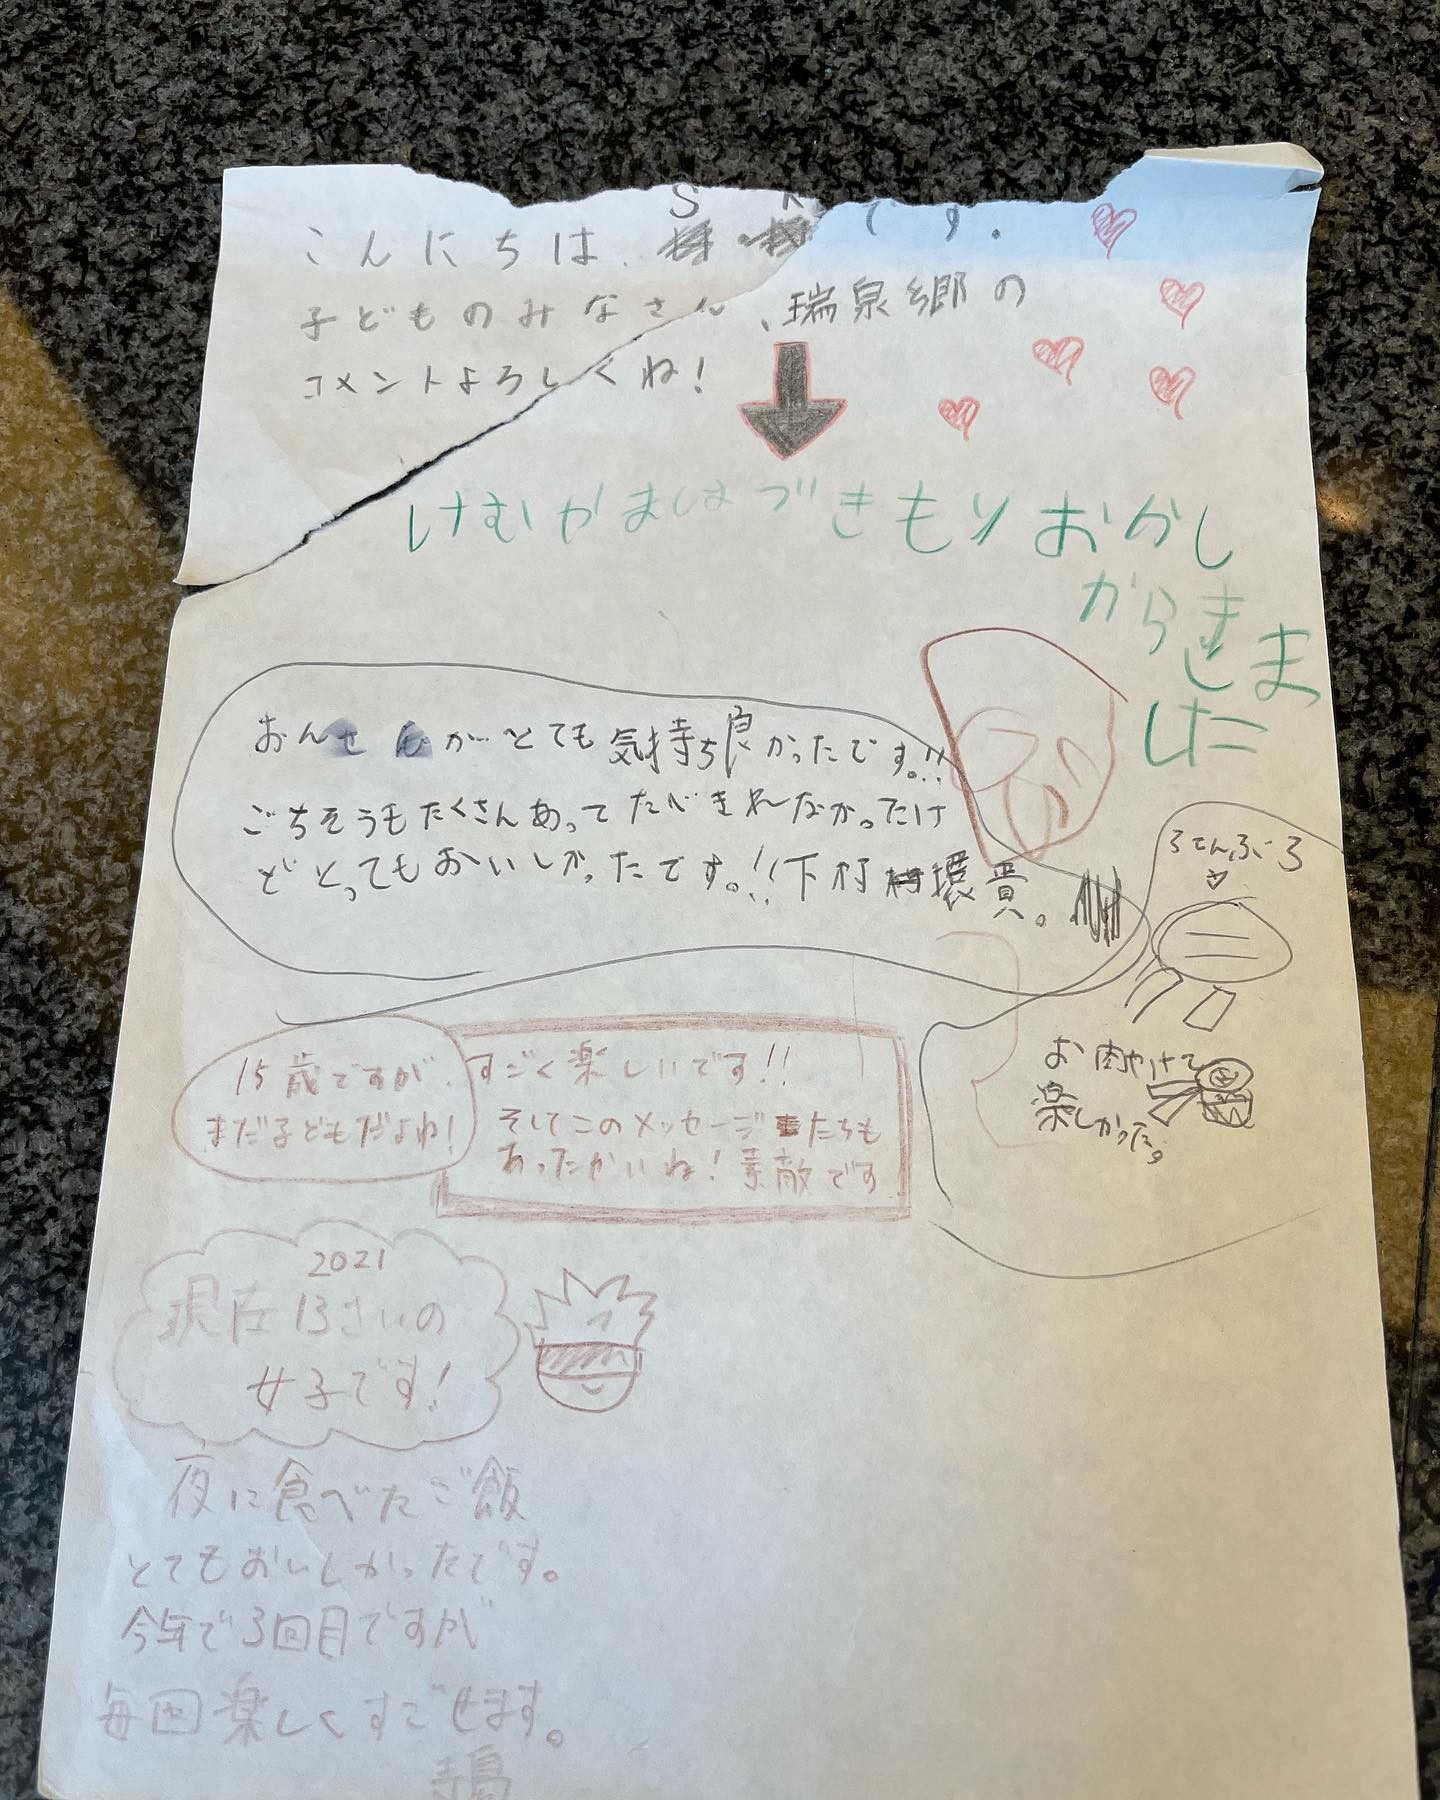 S K
こんにちは、です。
子どものみなさん、瑞泉郷の
コメントよろしくね!
けむやまはづきもりおかし
からきま
した
おんせんがとても気持ち良かったです。!!
ごちそうもたくさんあってたべきれなかったけ
どとってもおいしかったです。!!下村 貴。
ろてんぶろ
お肉やけて
楽しかった。
15歳ですが、
まだ子どもだよね!
すごく楽しいです!!
そしてこのメッセージたちも
あったかいね!素敵です
2021
現在13さいの
女子です!
夜に食べたご飯
とてもおいしかったです。
今年で3回目ですが
毎回楽しくすごせます。
寺島